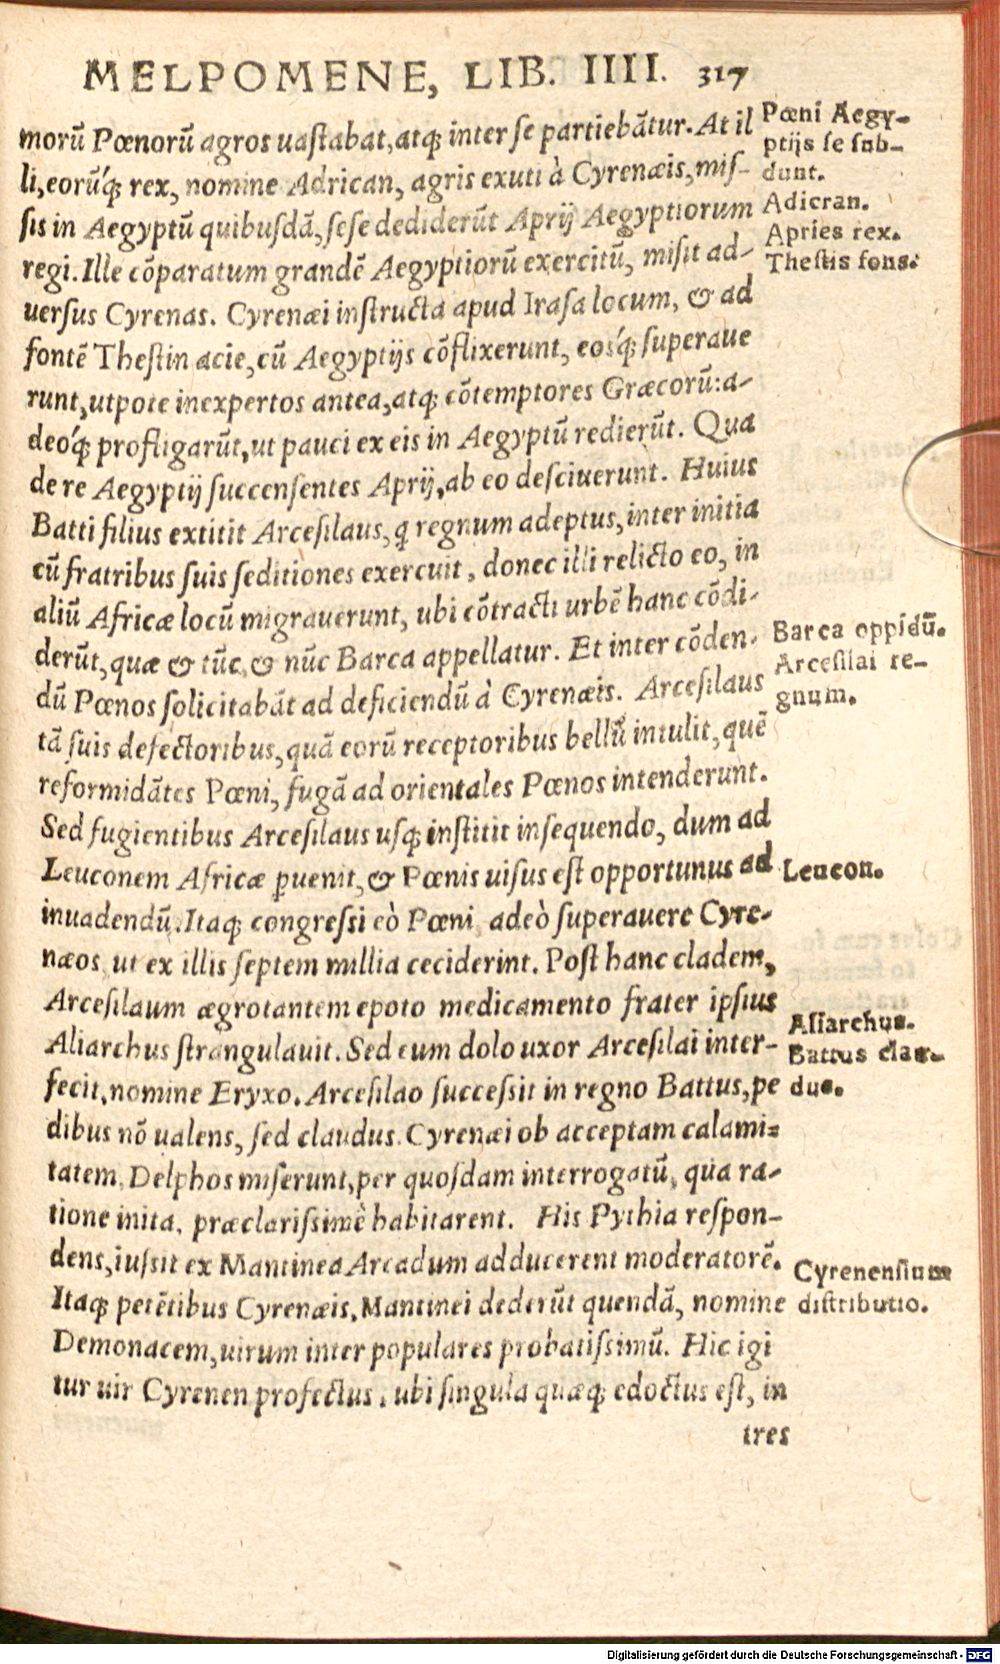 MELPOMENE, LIB. IIII. 317
morũ Pœnorũ agros uaſtabat, atq́; inter ſe partiebãtur. At il
li, eorũq́; rex, nomine Adrican, agris exuti à Cyrenæis, miſ-
ſis in Aegyptũ quibuſdã, ſeſe dediderũt Aprij Aegyptiorum
regi. Ille cõparatum grandẽ Aegyptiorũ exercitũ, miſit ad-
uerſus Cyrenas. Cyrenæi inſtructa apud Iraſa locum, & ad
fontẽ Theſtin acie, cũ Aegyptijs cõflixerunt, eosq́; ſuperaue
runt, utpote inexpertos antea, atq́; cõtemptores Græcorũ: a-
deoq́; profligarũt, ut pauci ex eis in Aegyptũ redierũt. Qua
de re Aegyptij ſuccenſentes Aprij, ab eo deſciuerunt. Huius
Batti filius extitit Arceſilaus, q̃ regnum adeptus, inter initia
cũ fratribus ſuis ſeditiones exercuit, donec illi relicto eo, in
aliũ Africæ locũ migrauerunt, ubi cõtracti urbẽ hanc cõdi-
derũt, quæ & tũc, & nũc Barca appellatur. Et inter cõden-
dũ Pœnos ſolicitabãt ad deficiendũ à Cyrenæis. Arceſilaus
tã ſuis defectoribus, quã eorũ receptoribus bellũ intulit, quẽ
reformidãtes Pœni, fugã ad orientales Pœnos intenderunt.
Sed fugientibus Arceſilaus uſq; inſtitit inſequendo, dum ad
Leuconem Africæ ꝑuenit, & Pœnis uiſus eſt opportunus ad
inuadendũ. Itaq; congreſſi eò Pœni, adeò ſuperauere Cyre-
næos, ut ex illis ſeptem millia ceciderint. Poſt hanc cladem,
Arceſilaum ægrotantem epoto medicamento frater ipſius
Aliarchus ſtrangulauit. Sed eum dolo uxor Arceſilai inter-
fecit, nomine Eryxo. Arceſilao ſucceſsit in regno Battus, pe
dibus nõ ualens, ſed claudus. Cyrenæi ob acceptam calami-
tatem, Delphos miſerunt, per quoſdam interrogatũ, qua ra-
tione inita, præclariſsimè habitarent. His Pythia reſpon-
dens, iuſsit ex Mantinea Arcadum adducerent moderatorẽ.
Itaq; petẽtibus Cyrenæis, Mantinei dederũt quendã, nomine
Demonacem, uirum inter populares probatiſsimũ. Hic igi
tur uir Cyrenen profectus, ubi ſingula quæq; edoctus eſt, in
tres
Pœni Aegy-
ptijs ſe ſub-
dunt.
Adicran.
Apries rex.
Theſtis fons.
Barca oppidũ.
Arceſilai re-
gnum.
Leucon.
Aliarchus.
Battus clau-
dus.
Cyrenenſium
diſtributio.
Digitalisierung gefördert durch die Deutsche Forschungsgemeinschaft - DFG